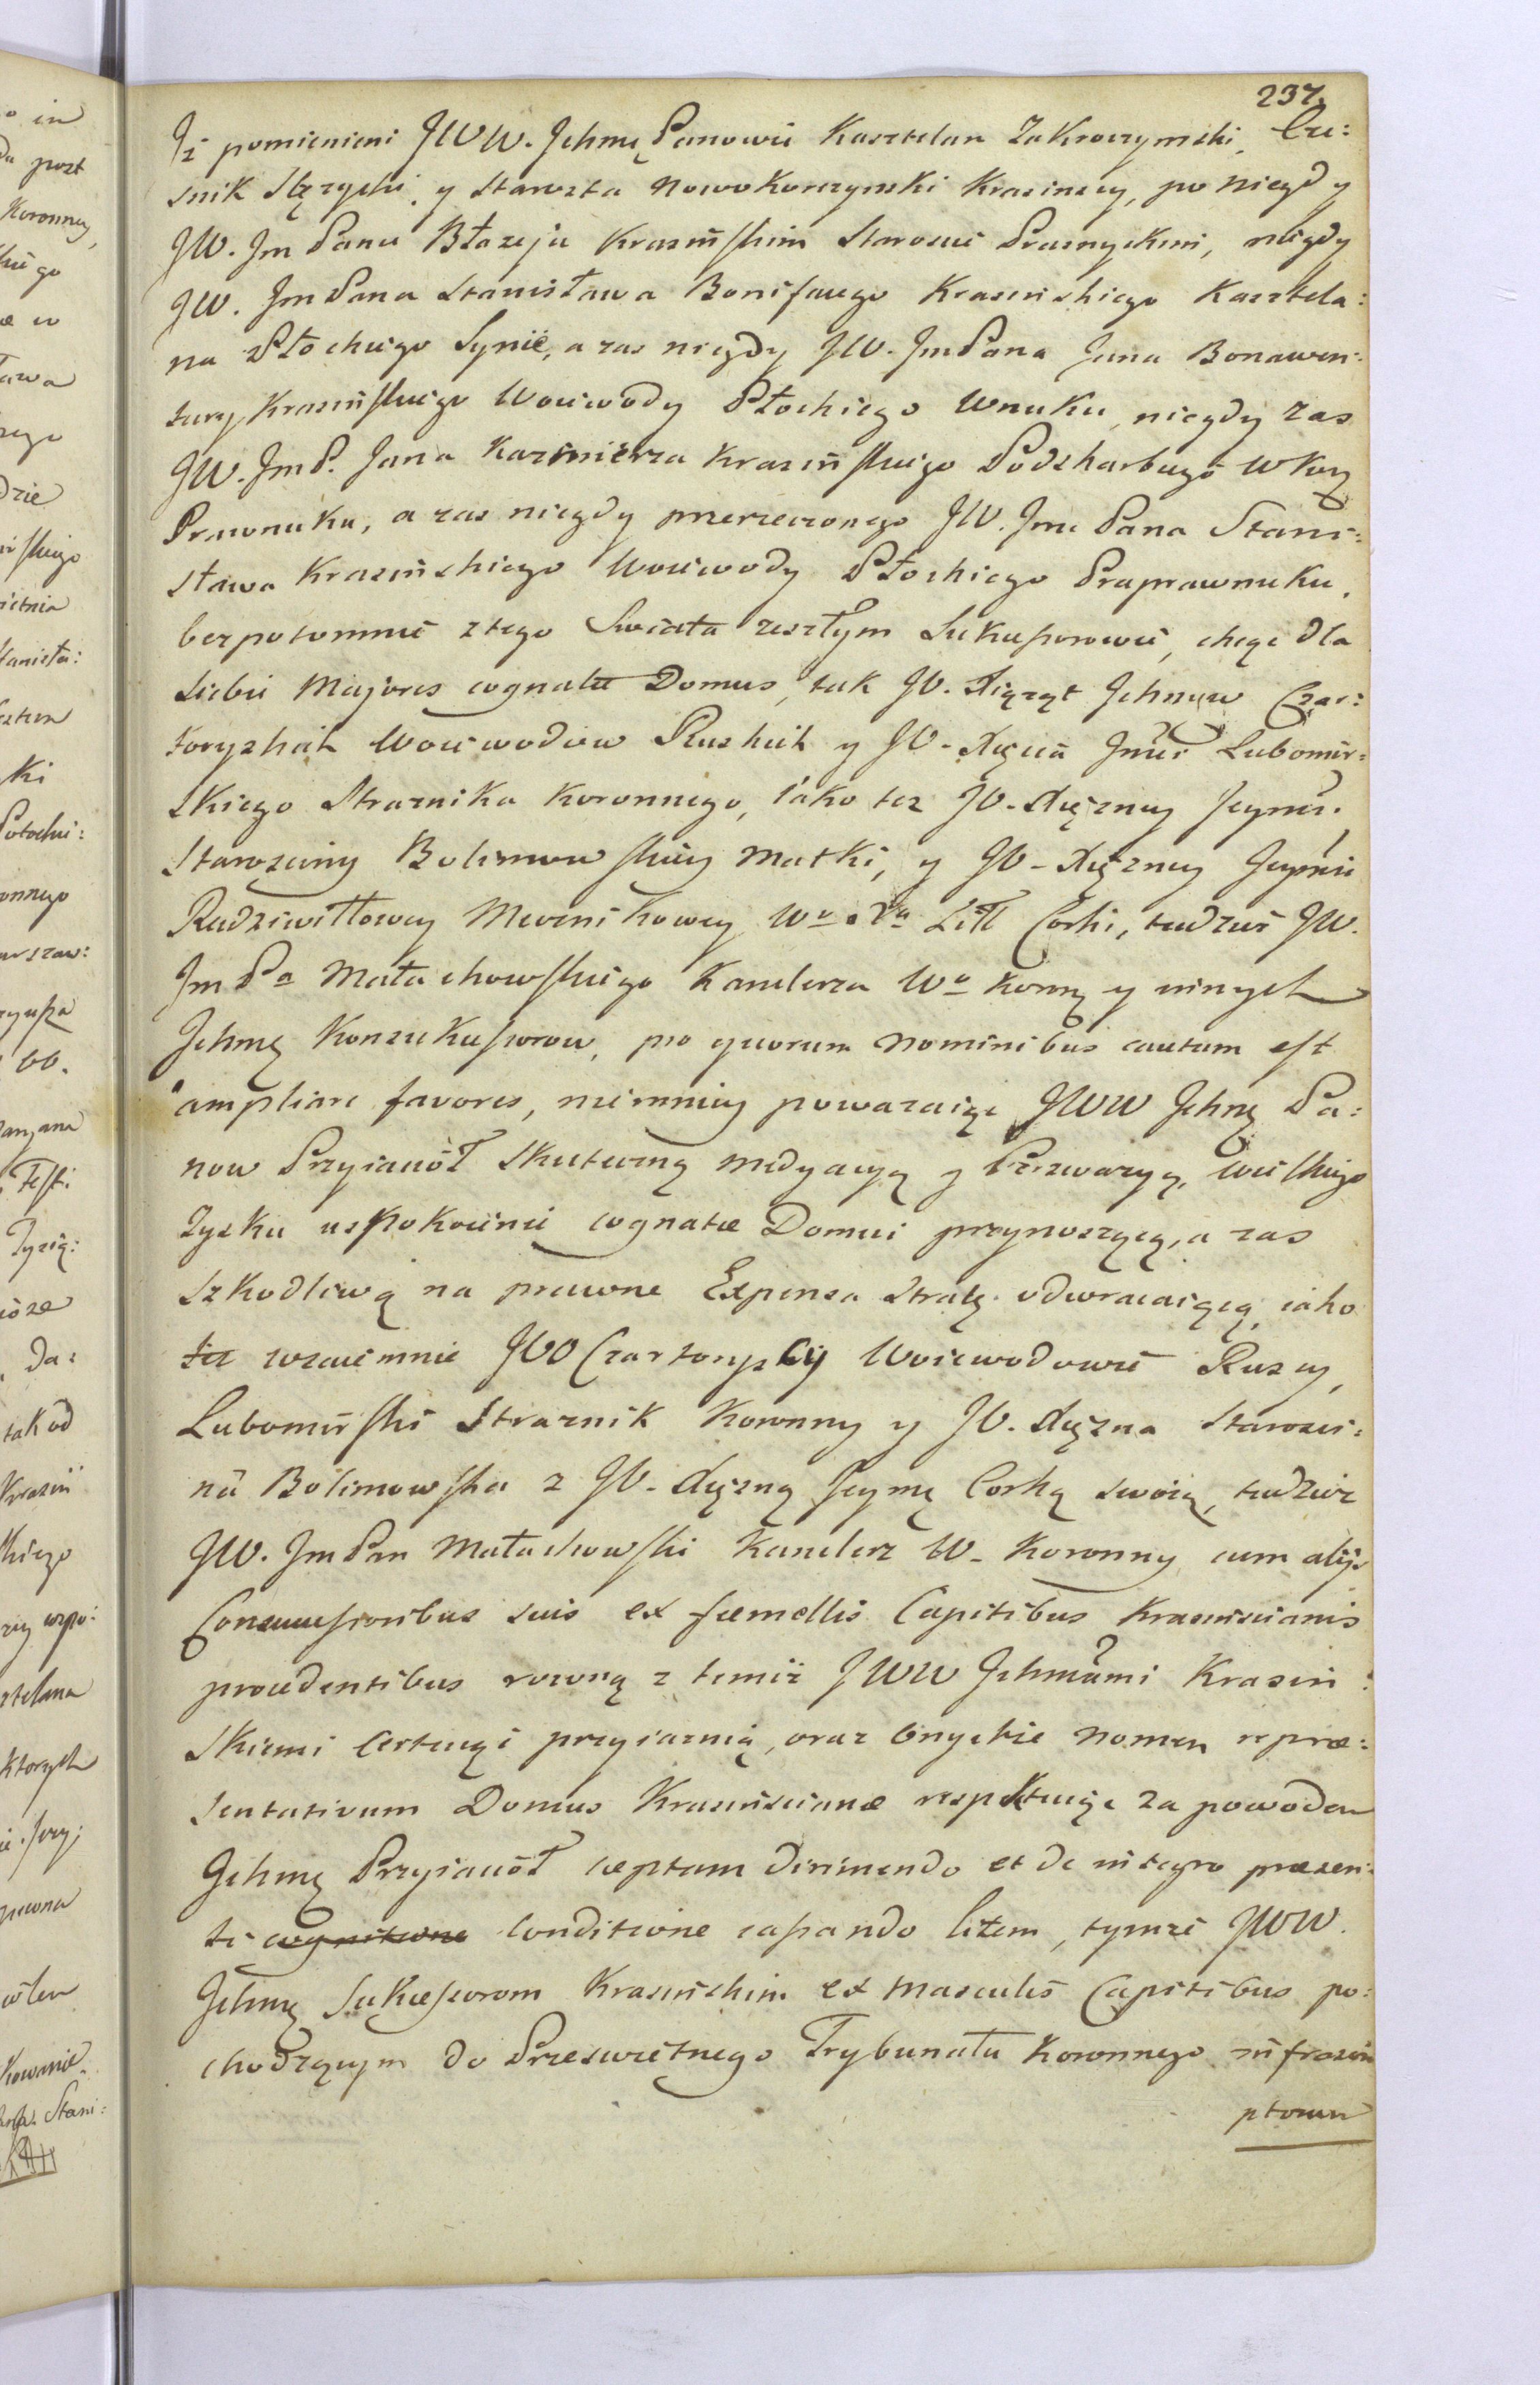 237.
Iż pomienieni JWW. Ichmę Panowie Kasztelan Zakroczymski, Cze:
snik Stęzycki, y Starosta Nowokorczynski Krasinscy, po niegdy
JW. Jm Panu Błazeju Krasińskim Staroscie Prasnyskim, niegdy
JW. Jm Pana Stanisława Bonifacego Krasinskiego Kasztela:
na Płockiego Synie, a zas niegdy JW. Jm Pana Jana Bonawen:
tury Krasińskiego Woiewody Płockiego Wnuku, niegdy zas
JW. Jm P. Jana Kazimierza Krasińskiego Podskarbiego W Korę
Prawnuku, a zas niegdy przerzeczonego JW. Jmc Pana Stani:
sława Krasinskiego Woiewody Płockiego Praprawnuku,
bezpotomnie z tego Swiata zeszłym Sukcessorowie, chcąc dla
siebie Majores cognatæ Domus, tak JO. Xiążąt Ichmęw Czar:
toryskich Woiewodow Ruskich y JO. Xięcia Jmci Lubomir:
skiego Straznika Koronnego, iako tez JO. Xięzney Jeymci.
Starosciny Bolimowskiey Matki, y JO. Xięzney Jeymci
Radziwiłłowey Miecznikowey Wo Xa Litt Corki, tudziez JW.
Jm Pa Małachowskiego Kanclerza Wo Korę y innych
Ichmę Konsukcessorow, pro quorum nominibus cautum est
ampliare favores, niemniey powazaiąc JWW Ichmę Pa:
now Przyiaciół skuteczną medyacyą y Perswazyą, wielkiego
Zysku uspokoienie cognatæ Domui przynoszącą, a zas
szkodliwą na prawne Expensa stratę odwracaiącą, iako
tez wzaiemnie JOO Czartoryscy Woiewodowie Ruscy,
Lubomirski Straznik Koronny y JO. Xięzna Starosci:
na Bolimowska z JO. Xięzną Jeymę Corką swoią, tudziez
JW. Jm Pan Małachowski Kanclerz W. Koronny cum alijs
Consuccessoribus suis ex fæmellis Capitibus Krasinscianis
procedentibus rowną z temiz JWW Ichmciami Krasin:
skiemi certuiąc przyiaznią, oraz onychze nomen repræ:
sentativum Domus Krasinscianæ respektuiąc za powodem
Ichmę Przyiaciół cæptam dirimendo et de integro præsen:
ti cognitione Conditione cassando litem, tymze JWW.
Ichmę Sukcessorom Krasinskim ex masculis Capitibus po:
chodzącym do Przeswietnego Trybunału Koronnego infrascri
ptorum